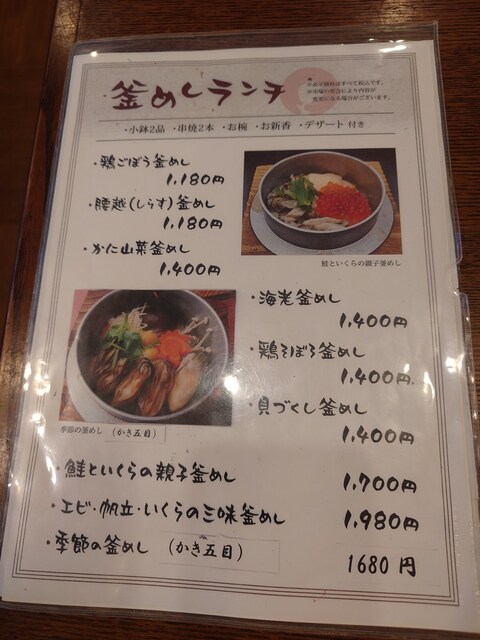 釜めしランチ
※表示価格はすべて税込です。
※市場の都合により内容が
変更になる場合がございます。
・小鉢2品 ・串焼2本 ・お椀 ・お新香 ・デザート 付き
・鶏ごぼう釜めし
1,180円
・腰越(しらす)釜めし
1,180円
・かに山菜釜めし
1,400円
鮭といくらの親子釜めし
・海老釜めし
1,400円
・鶏そぼろ釜めし
1,400円
・貝づくし釜めし
1,400円
季節の釜めし (かき五目)
・鮭といくらの親子釜めし 1,700円
・エビ・帆立・いくらの三味釜めし 1,980円
・季節の釜めし (かき五目) 1680円